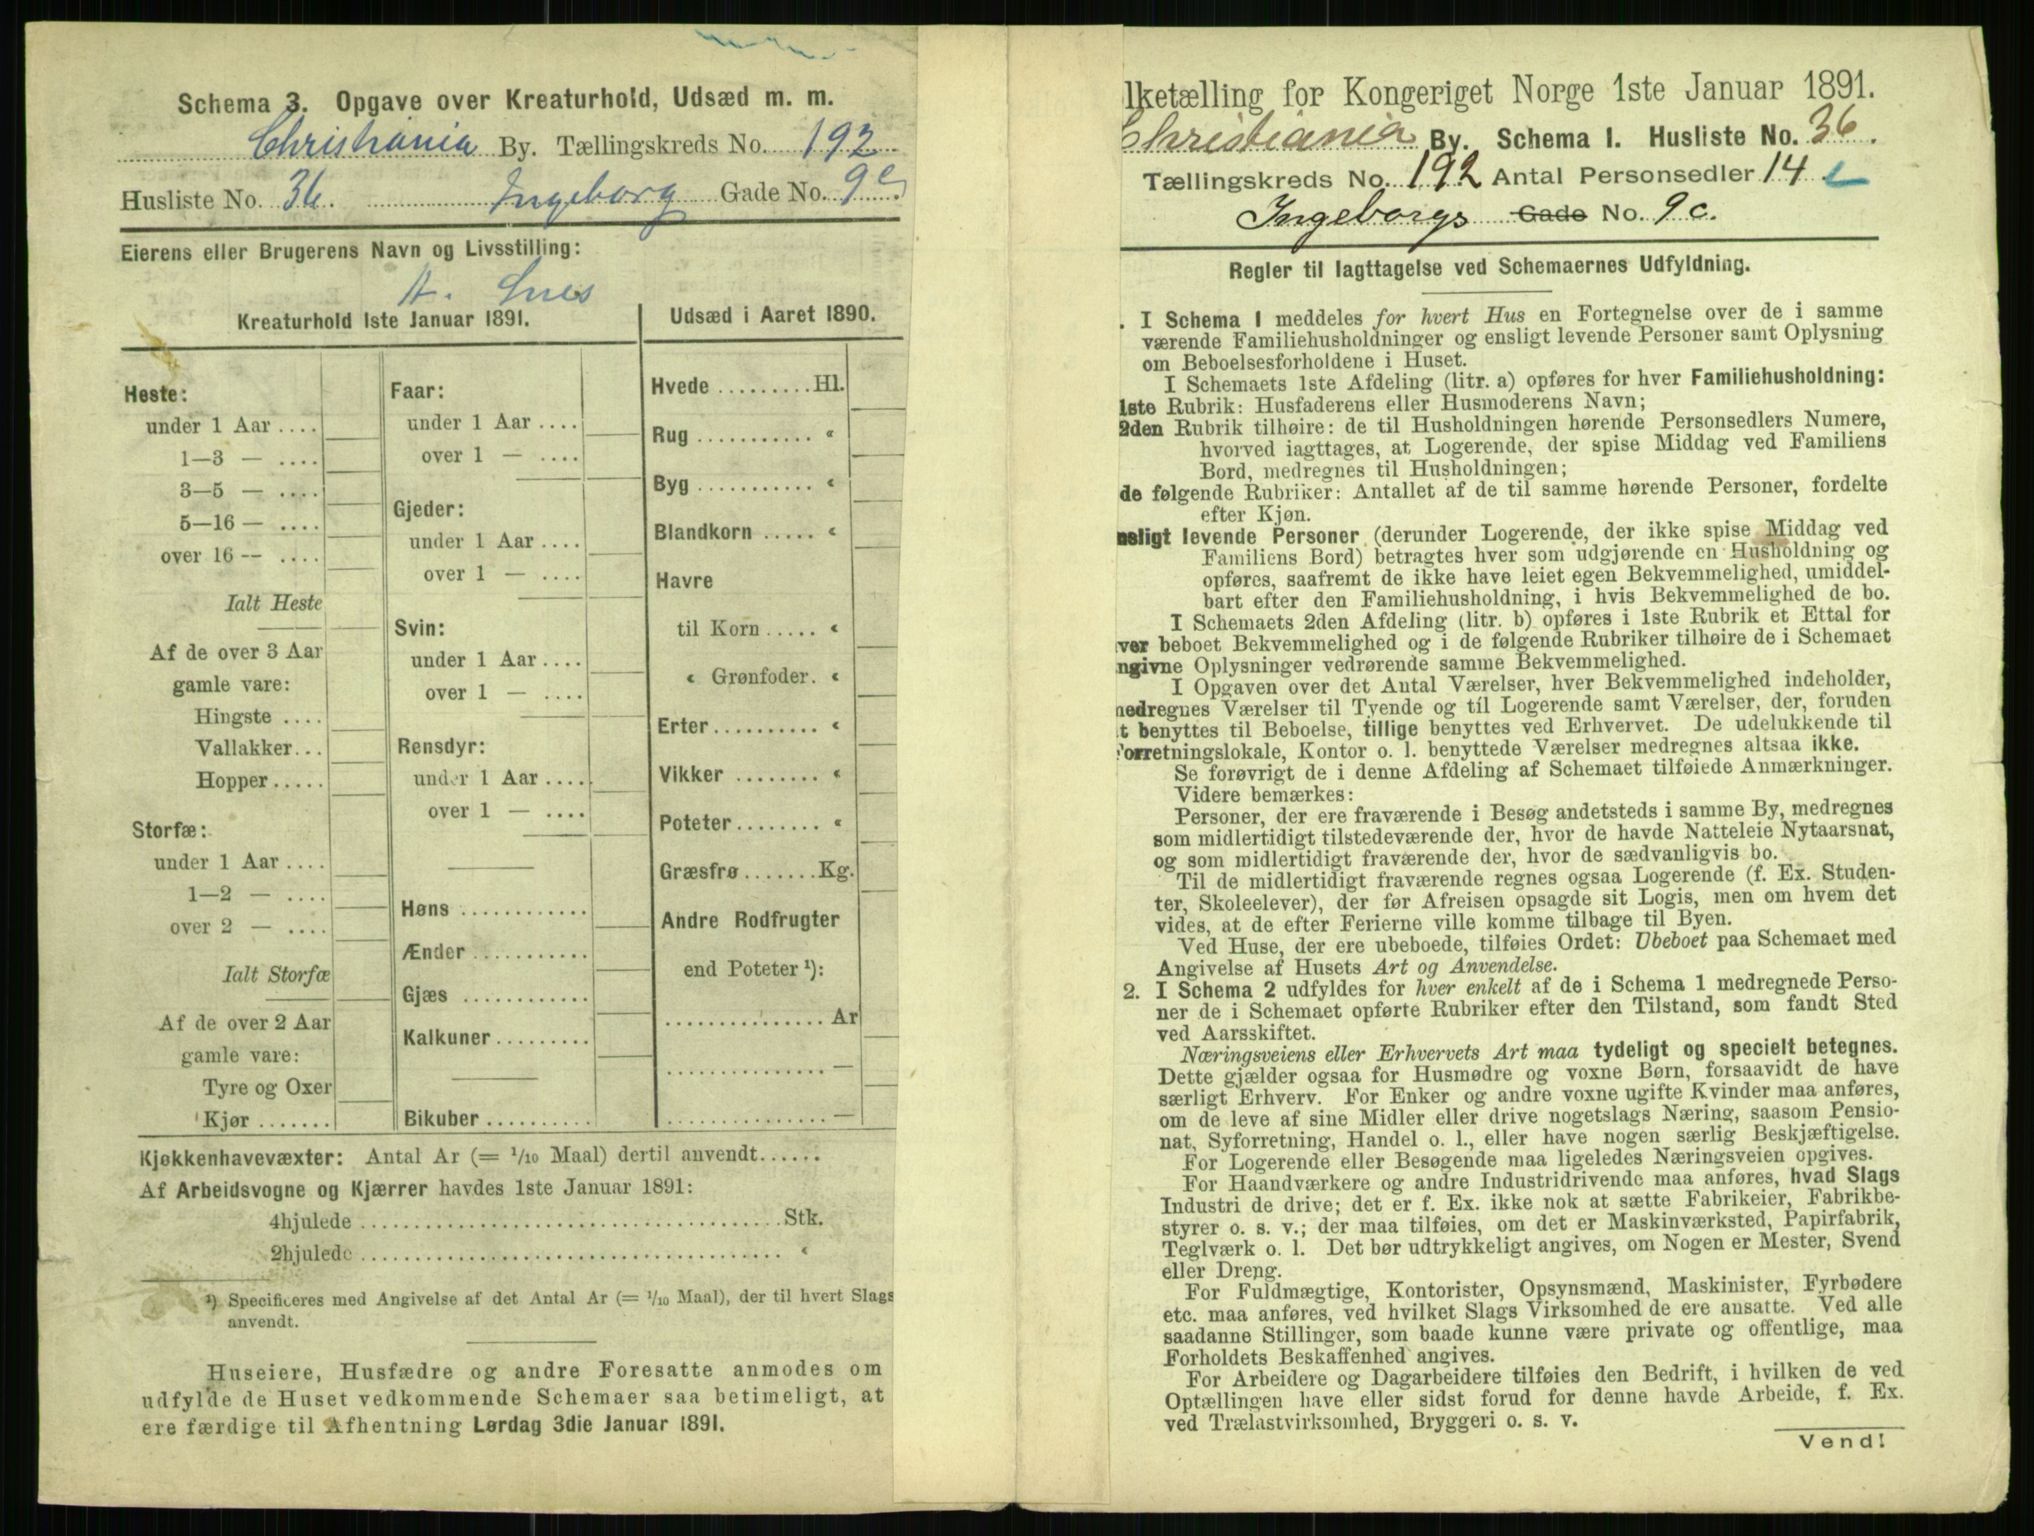 Schema 3. Opgave over Kreaturhold, Udsæd m. m.
Christiania By. Tællingskreds No. 192
Husliste No. 36. Ingeborg Gade No. 9c
Eierens eller Brugerens Navn og Livsstilling:
A.
Kreaturhold 1ste Januar 1891.
Heste:
under 1 Aar ....
1—3 — ....
3—5 — ....
5—16 — ....
over 16 — ....
Ialt Heste
Af de over 3 Aar
gamle vare:
Hingste ....
Vallakker...
Hopper.....
Storfæ:
under 1 Aar ....
1—2 — ....
over 2 — ....
Ialt Storfæ
Af de over 2 Aar
gamle vare:
Tyre og Oxer
Kjør .......
Faar:
under 1 Aar ....
over 1 — ....
Gjeder:
under 1 Aar ....
over 1 — ....
Svin:
under 1 Aar ....
over 1 — ....
Rensdyr:
under 1 Aar ....
over 1 — ....
Høns ............
Ænder ...........
Gjæs ............
Kalkuner.........
Bikuber ..........
Udsæd i Aaret 1890.
Hvede .........Hl.
Rug ........... «
Byg ........... «
Blandkorn ..... «
Havre
til Korn ..... «
« Grønfoder. «
Erter.......... «
Vikker ........ «
Poteter........ «
Græsfrø.......Kg.
Andre Rodfrugter
end Poteter ¹):
............... Ar
............... —
............... —
Kjøkkenhavevæxter: Antal Ar (= 1/10 Maal) dertil anvendt......
Af Arbeidsvogne og Kjærrer havdes 1ste Januar 1891:
4hjulede .......................................Stk.
2hjulede....................................... «
¹) Specificeres med Angivelse af det Antal Ar (= 1/10 Maal), der til hvert Slags
anvendt.
Huseiere, Husfædre og andre Foresatte anmodes om
udfylde de Huset vedkommende Schemaer saa betimeligt, at
ere færdige til Afhentning Lørdag 3die Januar 1891.
lketælling for Kongeriget Norge 1ste Januar 1891.
Christiania By. Schema I. Husliste No. 36.
Tællingskreds No. 192 Antal Personsedler 14
Ingeborgs Gade No. 9c.
Regler til Iagttagelse ved Schemaernes Udfyldning.
. I Schema 1 meddeles for hvert Hus en Fortegnelse over de i samme
værende Familiehusholdninger og ensligt levende Personer samt Oplysning
om Beboelsesforholdene i Huset.
I Schemaets 1ste Afdeling (litr. a) opføres for hver Familiehusholdning:
1ste Rubrik: Husfaderens eller Husmoderens Navn;
2den Rubrik tilhøire: de til Husholdningen hørende Personsedlers Numere,
hvorved iagttages, at Logerende, der spise Middag ved Familiens
Bord, medregnes til Husholdningen;
de følgende Rubriker: Antallet af de til samme hørende Personer, fordelte
efter Kjøn.
nsligt levende Personer (derunder Logerende, der ikke spise Middag ved
Familiens Bord) betragtes hver som udgjørende en Husholdning og
opføres, saafremt de ikke have leiet egen Bekvemmelighed, umiddel-
bart efter den Familiehusholdning, i hvis Bekvemmelighed de bo.
I Schemaets 2den Afdeling (litr. b) opføres i 1ste Rubrik et Ettal for
ver beboet Bekvemmelighed og i de følgende Rubriker tilhøire de i Schemaet
ngivne Oplysninger vedrørende samme Bekvemmelighed.
I Opgaven over det Antal Værelser, hver Bekvemmelighed indeholder,
medregnes Værelser til Tyende og til Logerende samt Værelser, der, foruden
t benyttes til Beboelse, tillige benyttes ved Erhvervet. De udelukkende til
orretningslokale, Kontor o. l. benyttede Værelser medregnes altsaa ikke.
Se forøvrigt de i denne Afdeling af Schemaet tilføiede Anmærkninger.
Videre bemærkes:
Personer, der ere fraværende i Besøg andetsteds i samme By, medregnes
som midlertidigt tilstedeværende der, hvor de havde Natteleie Nytaarsnat,
og som midlertidigt fraværende der, hvor de sædvanligvis bo.
Til de midlertidigt fraværende regnes ogsaa Logerende (f. Ex. Studen-
ter, Skoleelever), der før Afreisen opsagde sit Logis, men om hvem det
vides, at de efter Ferierne ville komme tilbage til Byen.
Ved Huse, der ere ubeboede, tilføies Ordet: Ubeboet paa Schemaet med
Angivelse af Husets Art og Anvendelse.
2. I Schema 2 udfyldes for hver enkelt af de i Schema 1 medregnede Perso-
ner de i Schemaet opførte Rubriker efter den Tilstand, som fandt Sted
ved Aarsskiftet.
Næringsveiens eller Erhvervets Art maa tydeligt og specielt betegnes.
Dette gjælder ogsaa for Husmødre og voxne Børn, forsaavidt de have
særligt Erhverv. For Enker og andre voxne ugifte Kvinder maa anføres,
om de leve af sine Midler eller drive nogetslags Næring, saasom Pensio-
nat, Syforretning, Handel o. l., eller have nogen særlig Beskjæftigelse.
For Logerende eller Besøgende maa ligeledes Næringsveien opgives.
For Haandværkere og andre Industridrivende maa anføres, hvad Slags
Industri de drive; det er f. Ex. ikke nok at sætte Fabrikeier, Fabrikbe-
styrer o. s. v.; der maa tilføies, om det er Maskinværksted, Papirfabrik,
Teglværk o. l. Det bør udtrykkeligt angives, om Nogen er Mester, Svend
eller Dreng.
For Fuldmægtige, Kontorister, Opsynsmænd, Maskinister, Fyrbødere
etc. maa anføres, ved hvilket Slags Virksomhed de ere ansatte. Ved alle
saadanne Stillinger, som baade kunne være private og offentlige, maa
Forholdets Beskaffenhed angives.
For Arbeidere og Dagarbeidere tilføies den Bedrift, i hvilken de ved
Optællingen have eller sidst forud for denne havde Arbeide, f. Ex.
ved Trælastvirksomhed, Bryggeri o. s. v.
Vend!